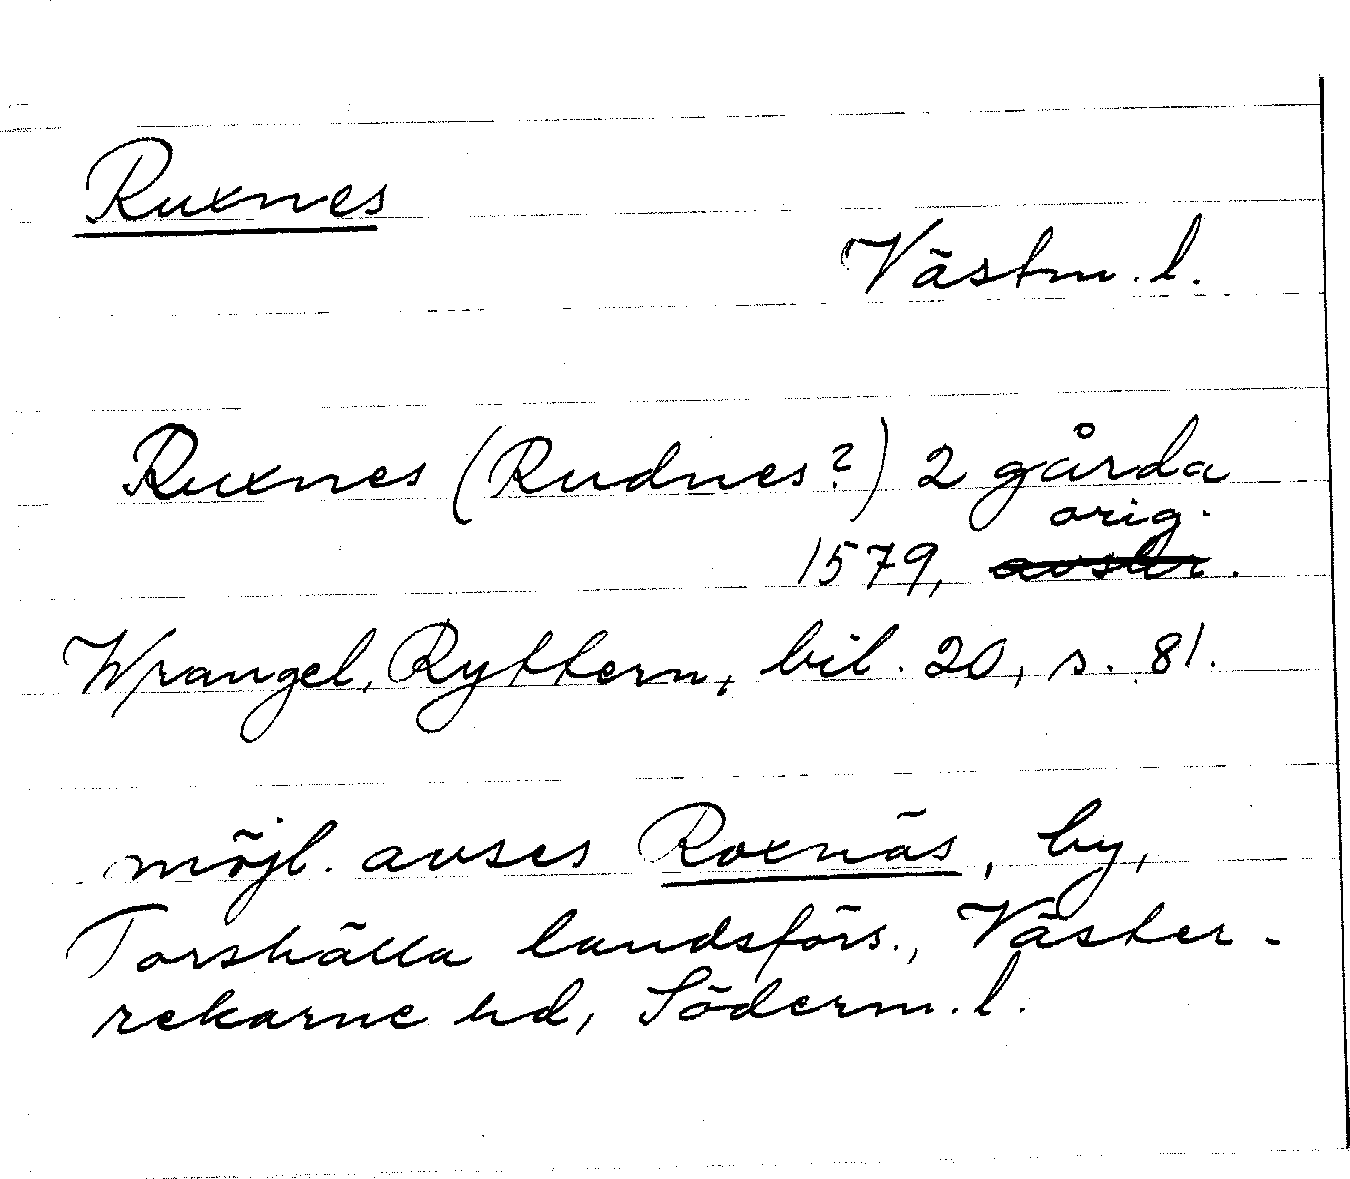 Ruxnes
Västm. l.
Ruxnes (Rudnes?) 2 gårda
orig.
1579, avskr.
Wrangel, Ryttern, bil. 20, s. 81.
möjl. avses Roxnäs, by,
Torshälla landsförs., Väster-
rekarne hd, Söderm. l.